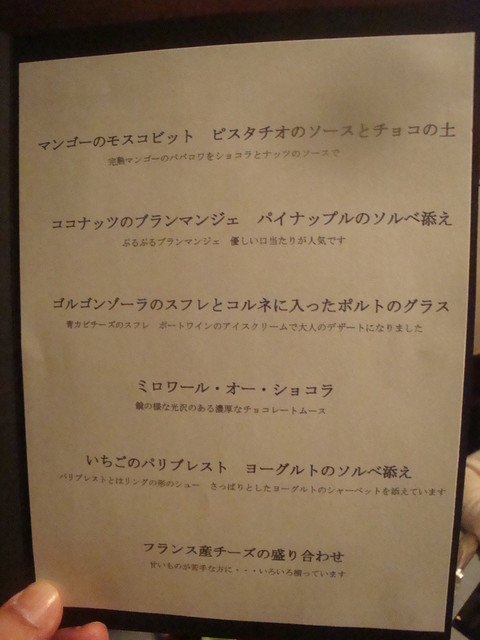 マンゴーのモスコビット　ピスタチオのソースとチョコの土
完熟マンゴーのババロワをショコラとナッツのソースで
ココナッツのブランマンジェ　パイナップルのソルベ添え
ぷるぷるブランマンジェ　優しい口当たりが人気です
ゴルゴンゾーラのスフレとコルネに入ったポルトのグラス
青カビチーズのスフレ　ポートワインのアイスクリームで大人のデザートになりました
ミロワール・オー・ショコラ
鏡の様な光沢のある濃厚なチョコレートムース
いちごのパリブレスト　ヨーグルトのソルベ添え
パリブレストとはリングの形のシュー　さっぱりとしたヨーグルトのシャーベットを添えています
フランス産チーズの盛り合わせ
甘いものが苦手な方に・・・いろいろ揃っています